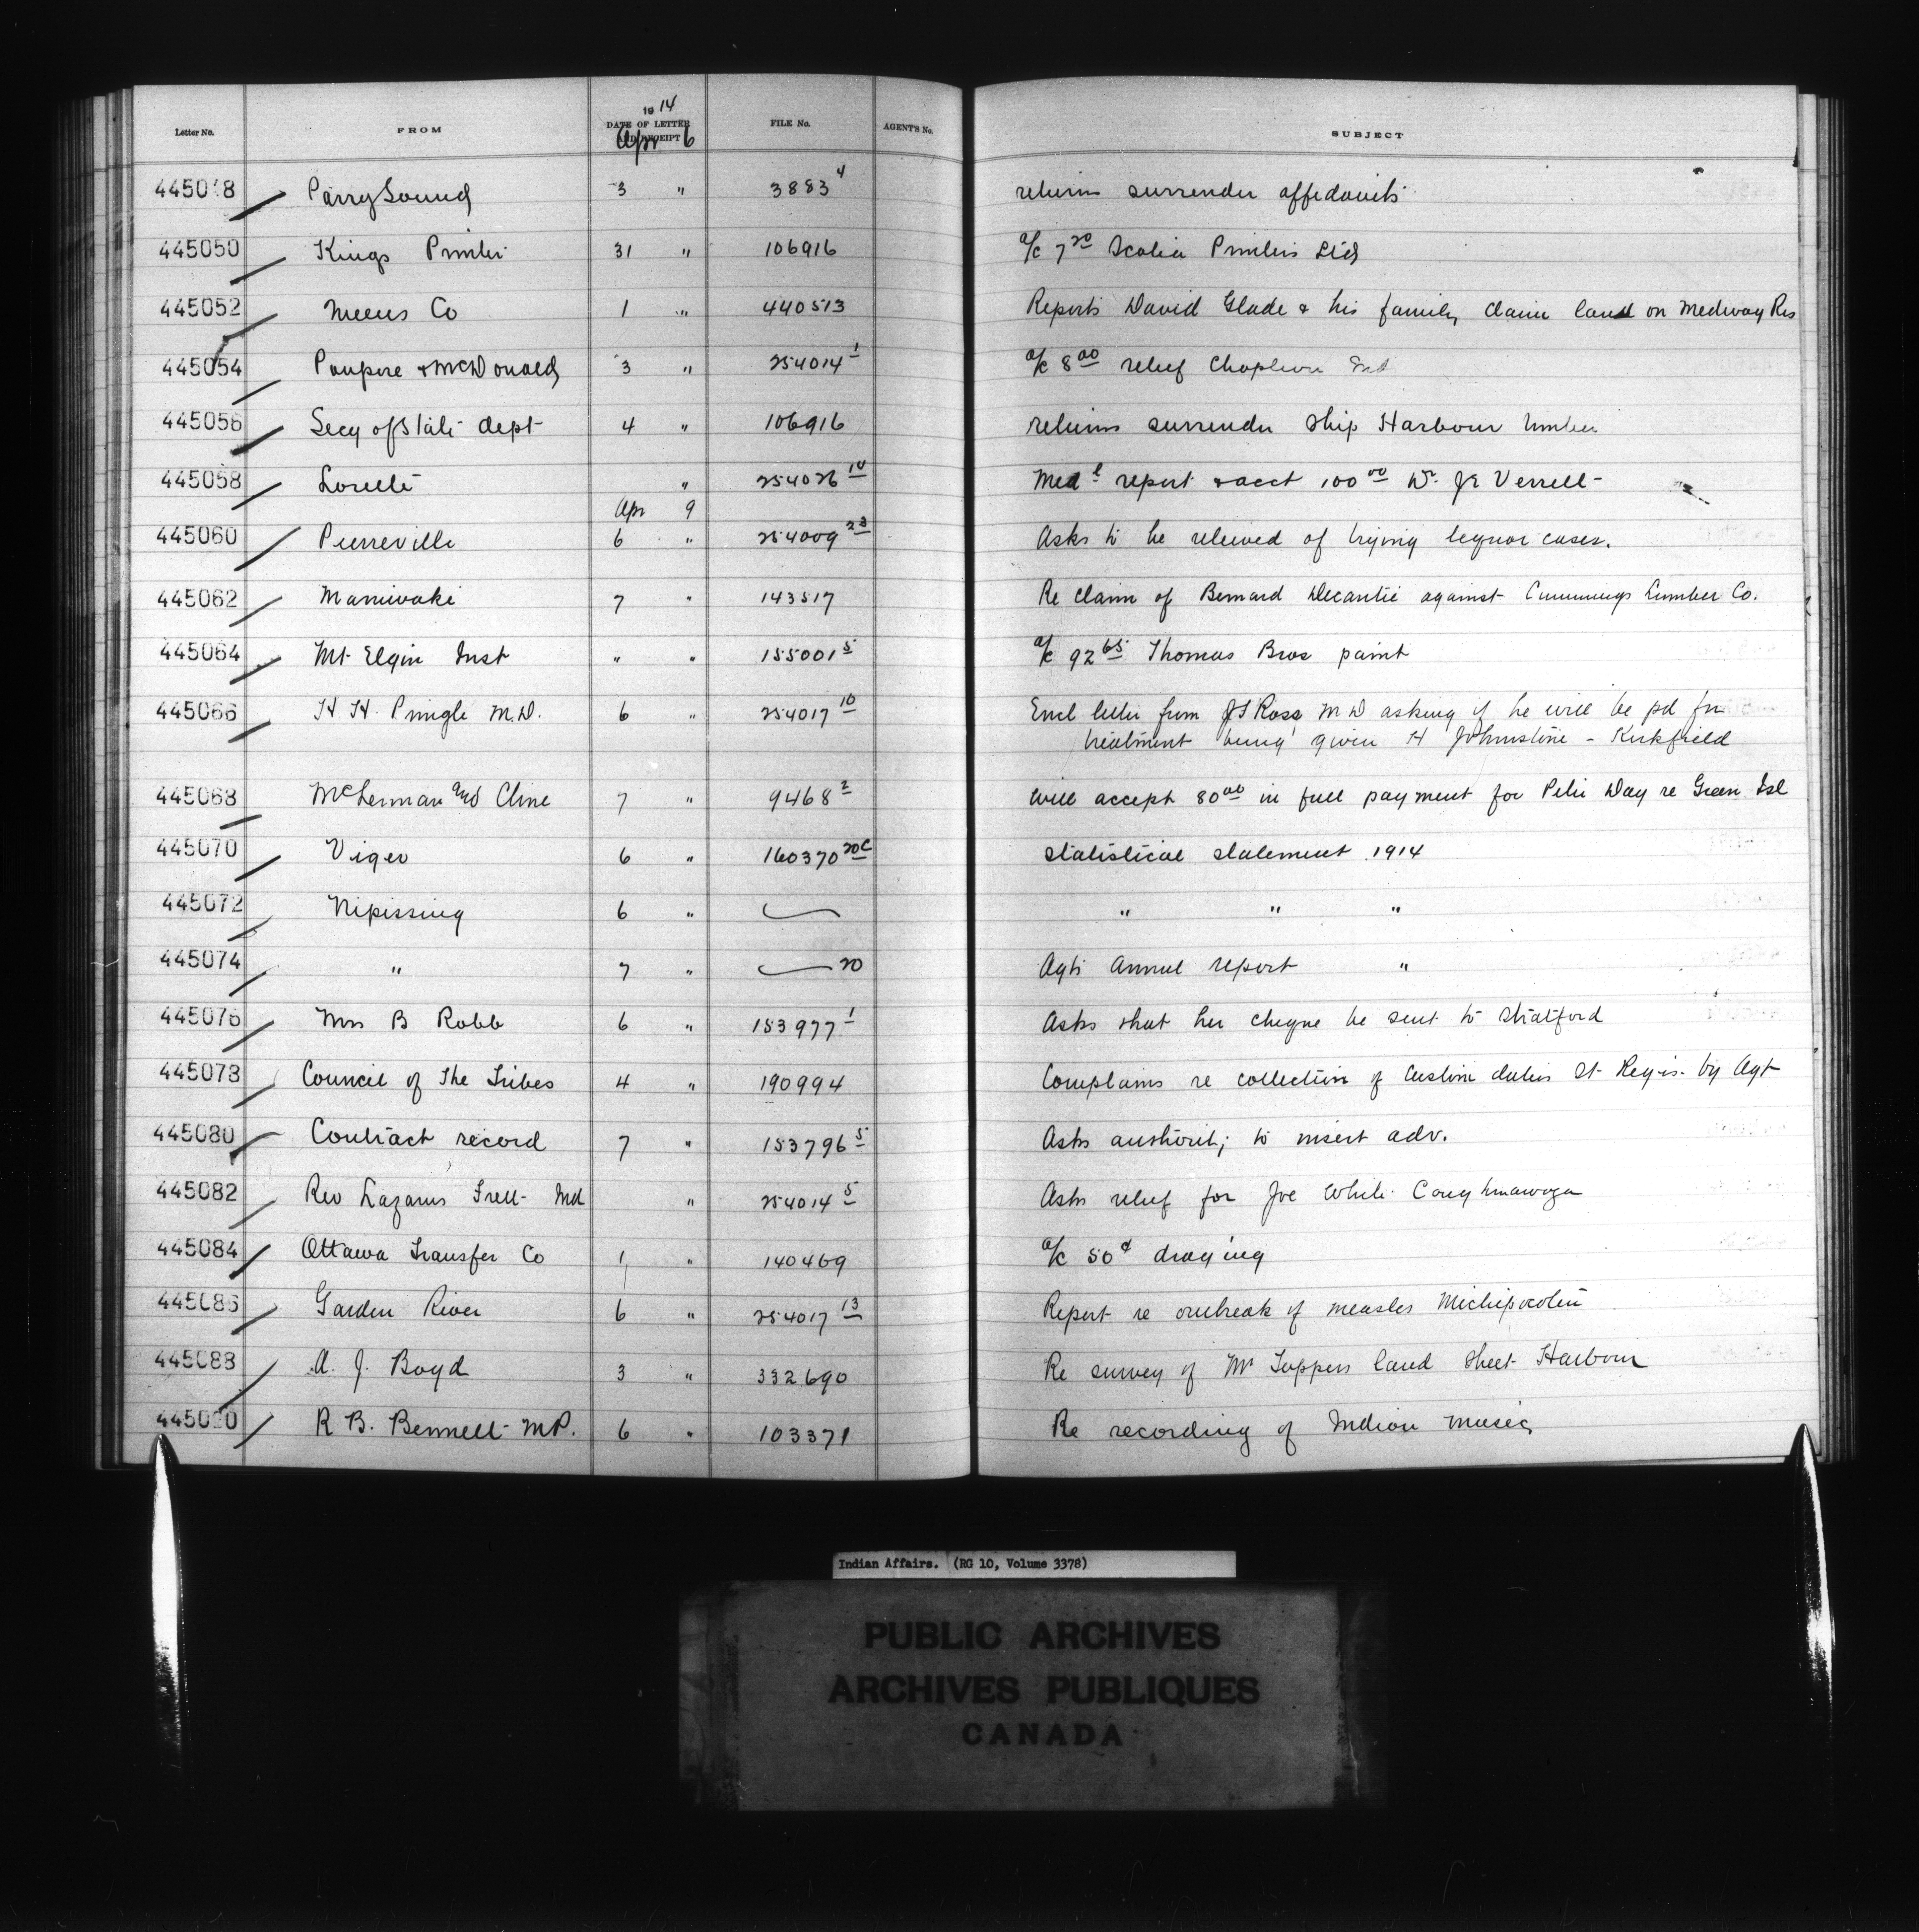 1914
Letter No. FROM DATE OF LETTER AND RECEIPT FILE No. AGENT'S No. SUBJECT
Apr 6
445048 Parry Sound 3 " 3883 4 returns surrender affidavits
445050 Kings Printer 31 " 106916 a/c 7 20 Scotia Printers Ltd
445052 Meens Co 1 " 440513 Reports David Glade & his family claim land on Medway Res
445054 Poupore & McDonald 3 " 254014 1 a/c 8 00 relief Chapleau Ind
445056 Secy of State dept 4 " 106916 returns surrender Ship Harbour timber
445058 Lorette " 254026 14 Med l report & acct 100 00 Dr. Verrett
Apr 9
445060 Pierreville 6 " 254009 23 Asks to be relieved of trying liquor cases.
445062 Maniwaki 7 " 143517 Re claim of Bernard Decontie against Cummings Lumber Co.
445064 Mt Elgin Inst " " 155001 5 a/c 92 65 Thomas Bros paint
445066 H H Pringle M.D. 6 " 254017 10 Encl letter from J S Ross M D asking if he will be pd for
treatment being given H Johnstone - Kirkfield
445068 McLennan and Cline 7 " 9468 2 Will accept 80 00 in full payment for Peter Day re Green Isl
445070 Viger 6 " 160370 20C Statistical statement 1914
445072 Nipissing 6 " " " "
445074 " 7 " 20 Agts Annul report "
445076 Mrs B Robb 6 " 153977 1 Asks that her cheque be sent to Stratford
445078 Council of The Tribes 4 " 190994 Complains re collection of Custom duties St Regis by Agt
445080 Contract record 7 " 153796 5 Asks authority to insert adv.
445082 Rev Lazarus Ind " 254014 5 Asks relief for Joe White Caughnawaga
445084 Ottawa Transfer Co 1 " 140469 a/c 50 ¢ draying
445086 Garden River 6 " 254017 13 Report re outbreak of measles Michipicoten
445088 A. J. Boyd 3 " 332690 Re survey of Mr Tuppers land Sheet Harbour
445090 R B. Bennett M.P. 6 " 103371 Re recording of Indian music
Indian Affairs. (RG 10, Volume 3378)
PUBLIC ARCHIVES
ARCHIVES PUBLIQUES
CANADA